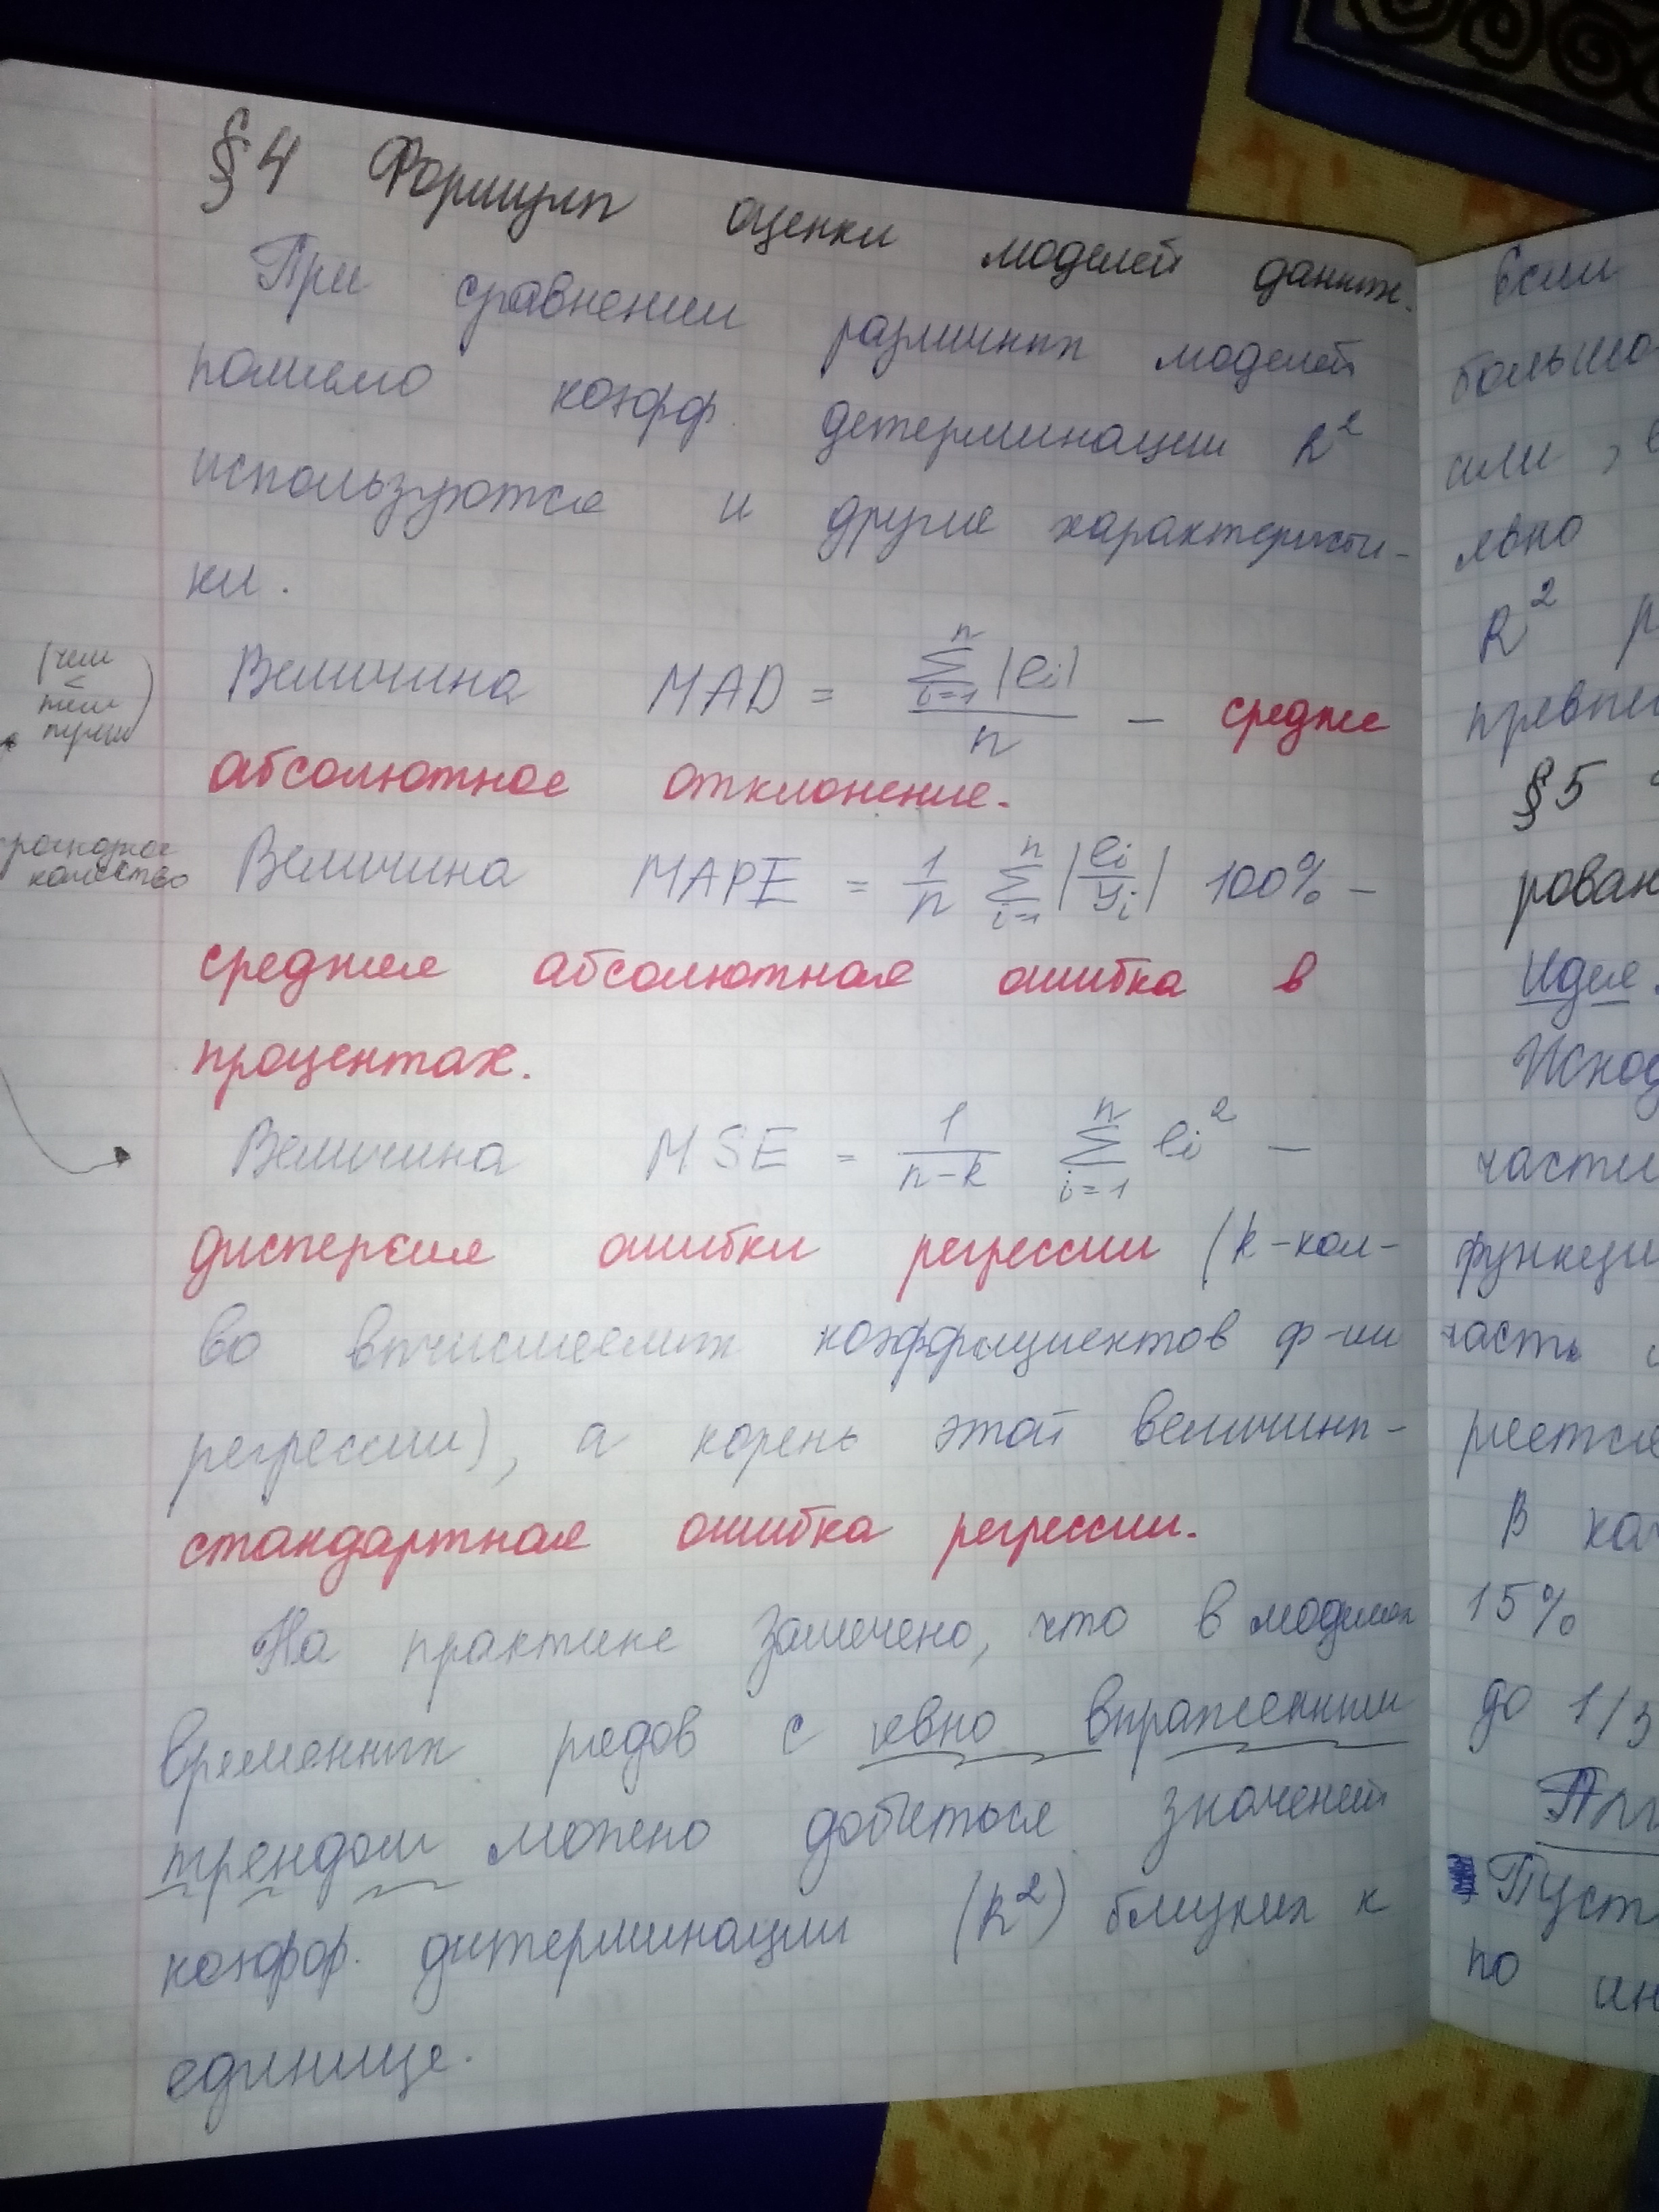 §4 Формулы оценки моделей данных.
При сравнении различных моделей
помимо коэфф. детерминации R²
используются и другие характеристи-
ки.
(чем
<
тем
лучше)
Величина MAD = \frac{\sum_{i=1}^{n} |e_i|}{n} – среднее
абсолютное отклонение.
качество
Величина MAPE = \frac{1}{n} \sum_{i=1}^{n} |\frac{e_i}{y_i}| 100% –
средняя абсолютная ошибка в
процентах.
Величина MSE = \frac{1}{n-k} \sum_{i=1}^{n} e_i^2 –
дисперсия ошибки регрессии (k-кол-
во вычисляемых коэффициентов ф-ии
регрессии), а корень этой величины-
стандартная ошибка регрессии.
На практике замечено, что в моделях
временных рядов с явно выраженным
трендом можно добиться значений
коэфф. дитерминации (R²) близких к
единице.
Если
большо
или, в
явно
R²
превы
§5
рован
Идея.
Исход
части
функци
часть
ряется
В кач
15%
до 1/3
Пуст
по